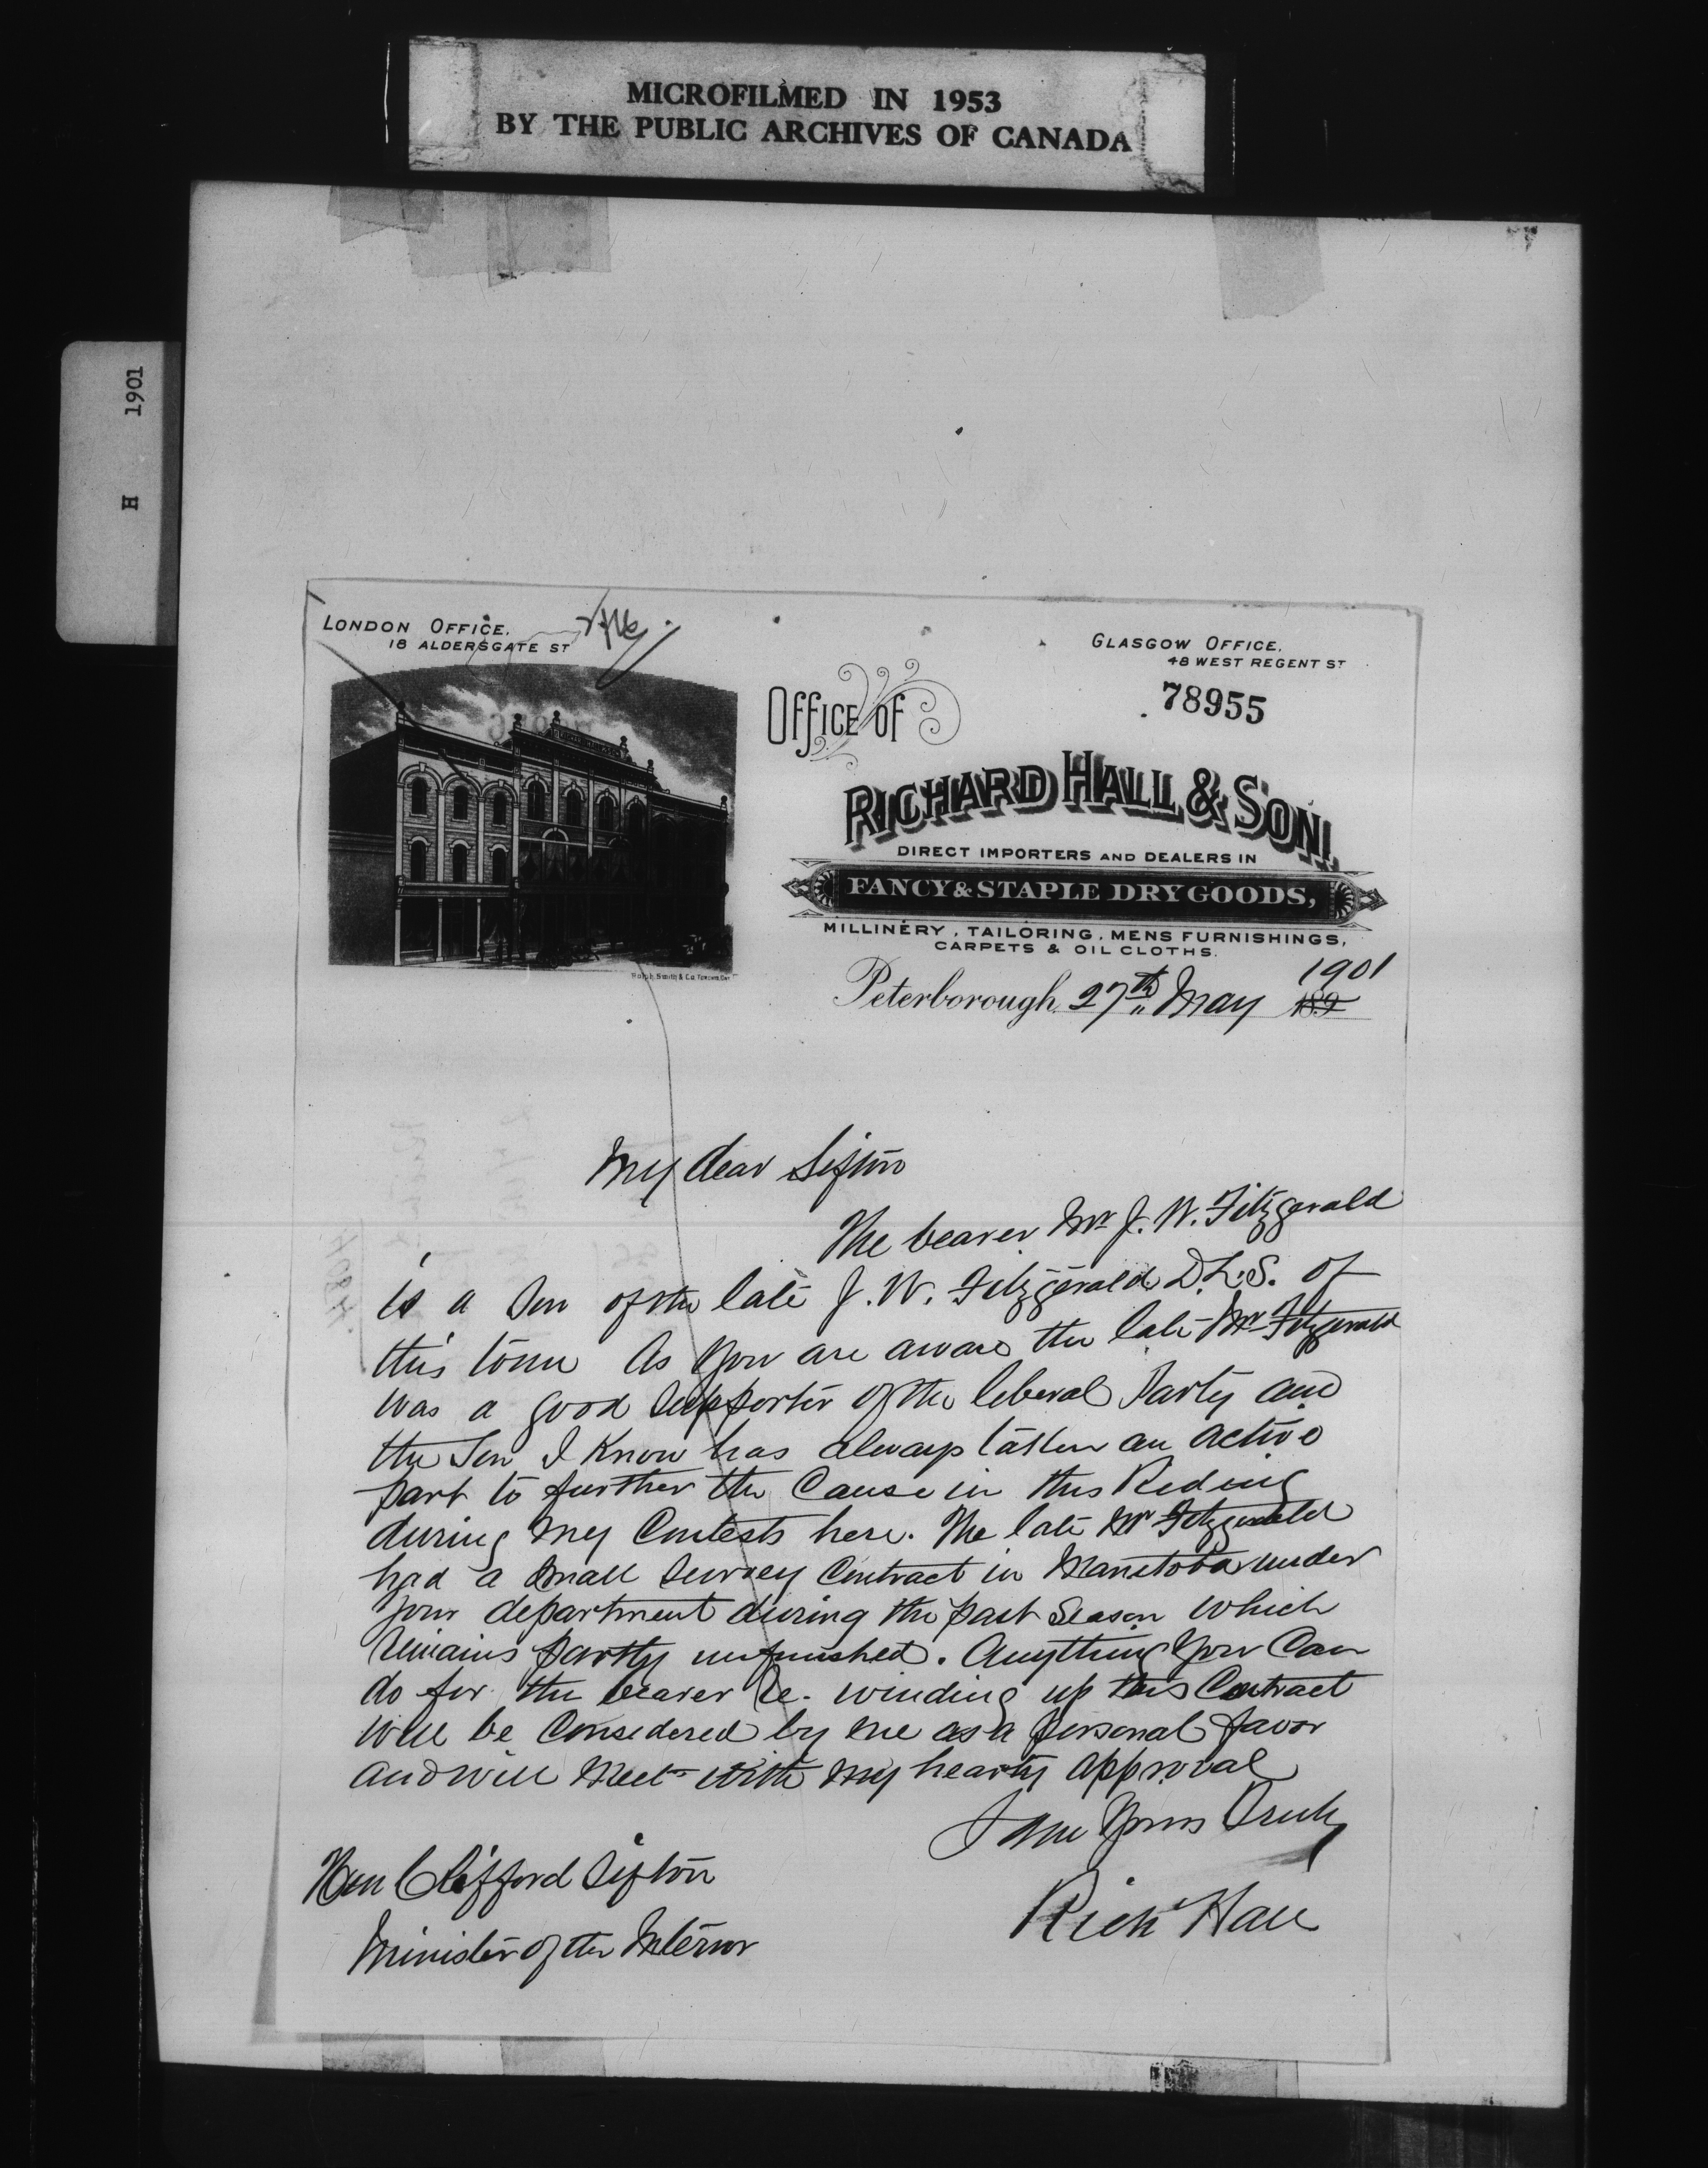 MICROFILMED IN 1953
BY THE PUBLIC ARCHIVES OF CANADA
H 1901
LONDON OFFICE.
18 ALDERSGATE ST
GLASGOW OFFICE.
48 WEST REGENT ST
78955
OFFICE OF
RICHARD HALL & SON,
DIRECT IMPORTERS AND DEALERS IN
FANCY & STAPLE DRY GOODS,
MILLINERY, TAILORING, MENS FURNISHINGS,
CARPETS & OIL CLOTHS.
Rolph, Smith & Co. Toronto, Ont
1901
Peterborough, 27th May 189
My dear Sifton
The bearer Mr J. W. Fitzgerald
is a Son of the late J. W. Fitzgerald D.L.S. of
this town As you are aware the late Mr Fitzgerald
was a good supporter of the liberal Party and
the Son I Know has always taken an active
part to further the Cause in this Riding
during my Contests here. The late Mr Fitzgerald
had a small survey Contract in Manitoba under
your department during the past Season which
remains partly unfinished. Anything you Can
do for the bearer re. winding up this Contract
will be Considered by me as a personal favor
and will meet with my hearty approval
I am yours Truly
Richd Hall
Hon Clifford Sifton
Minister of the Interior